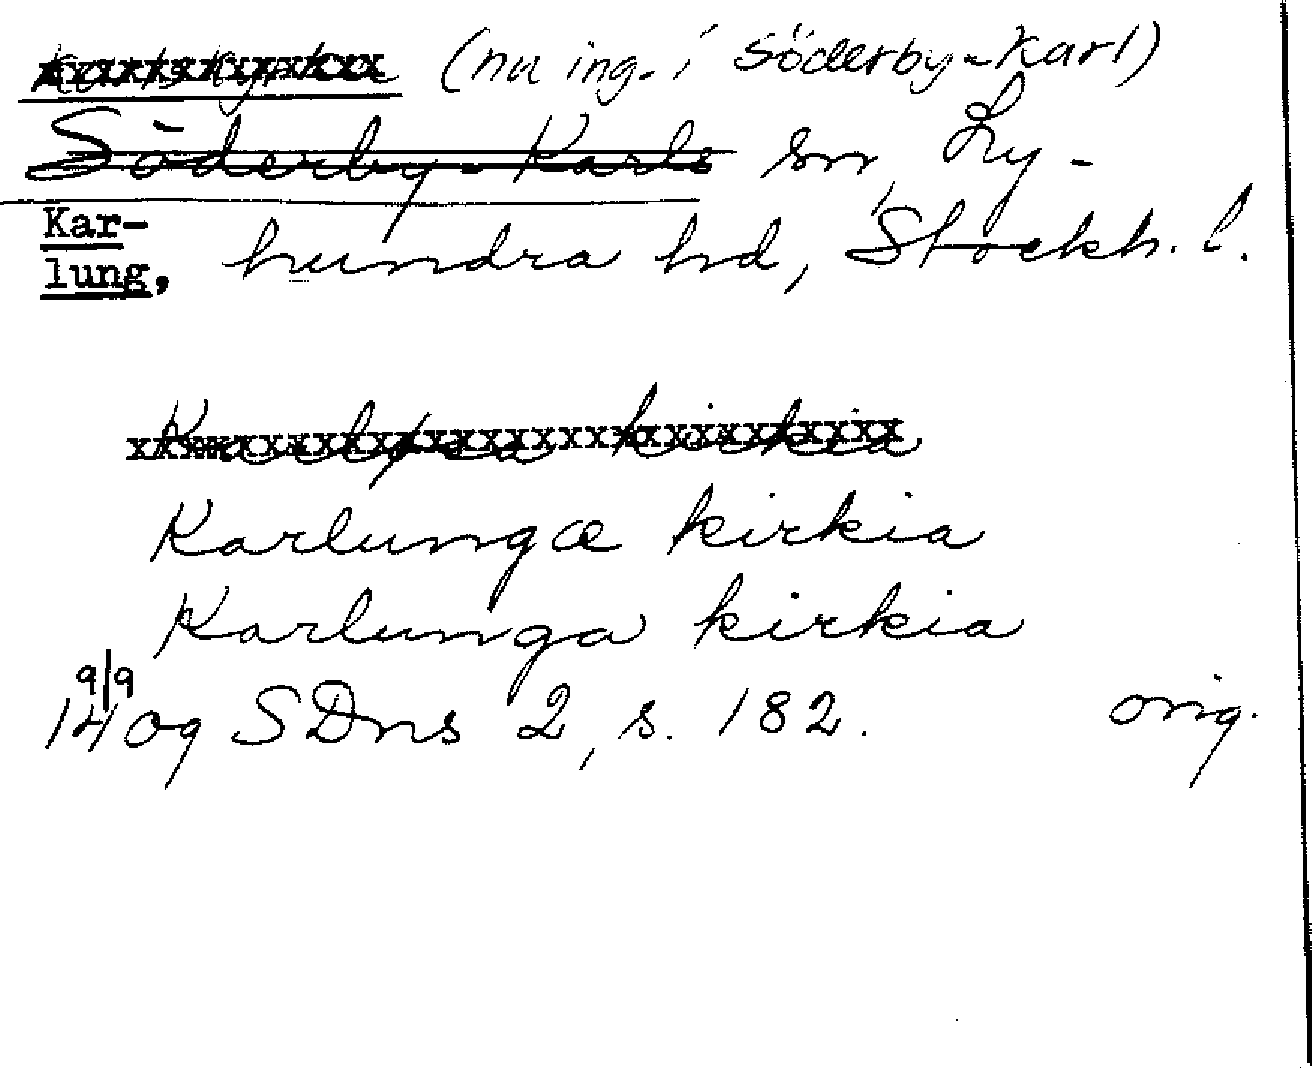 (nu ing. i Söderby-Karl)
Söderby-Karls sn, Ly-
Kar-
lung, hundra hd, Stockh. l.
kirkia
Karlungæ kirkia
Karlunga kirkia
9/9
1409 SDns 2, s. 182. orig.